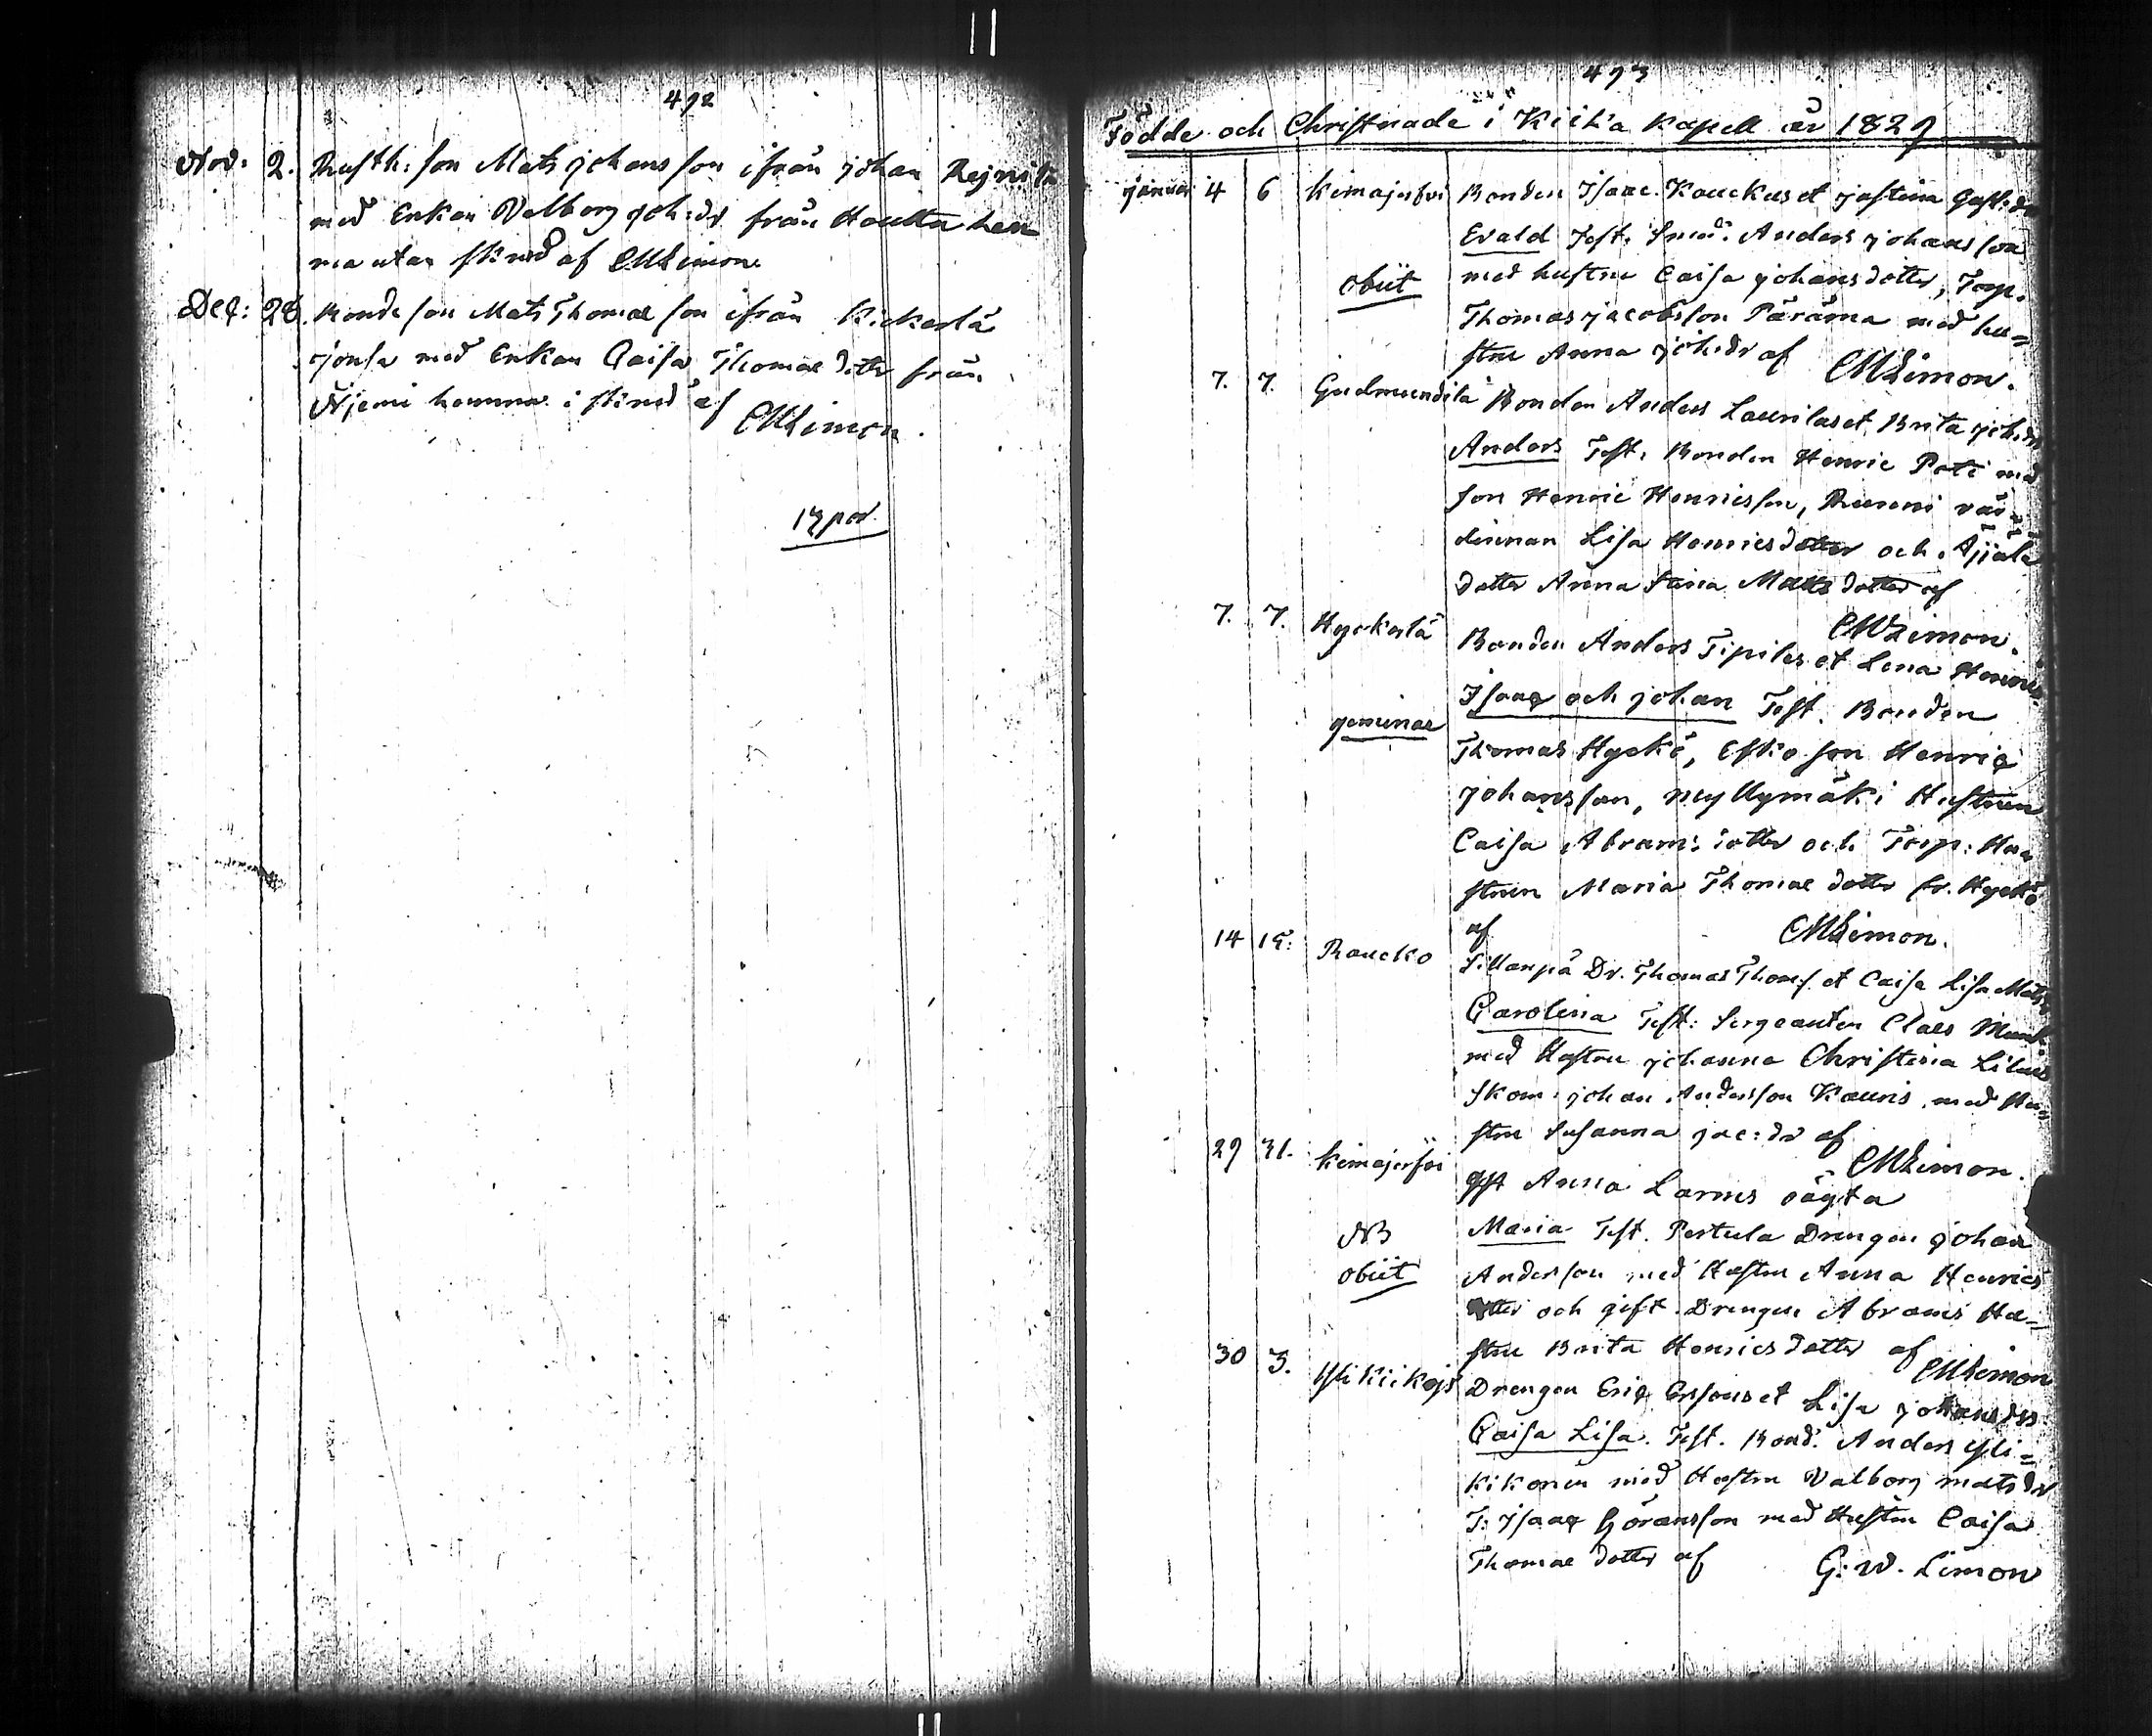 492
Nov: 2. Rusth: son Mats Johansson ifrån Johan Rejnila
med Enkan Valborg Joh:dr från Houtta hem
ma utan skrud af GWLimon.
Dec: 28. Bondeson Mats Thomæson ifrån Kickerlä
Jonsa med Enkan Caisa Thomæ dotter från
Njemi hemma i skrud af GWLimon.
17 par.
493
Födde och Christnade i Kiika Kapell år 1829
Januar: 4 6 Kimajerfvi Bonden Isaac Kauckus et Justina Gust:dr
Evald Test. Smed. Anders Johansson
obiit med hustru Caisa Johansdotter, Torp.
Thomas Jacobsson Pärämä med hu=
stru Anna Joh:dr af GWLimon.
7. 7. Gudmundila Bonden Anders Laurilas et Brita Joh:dr
Anders Test. Bonden Henric Pati med
son Henric Henricsson, Runni vär=
dinnan Lisa Henricsdotter och Äijälä
dotter Anna Stina Matts dotter af
GWLimon.
7. 7. Hyckerlä Bonden Anders Tipilas et Lena Henrics
Isaac och Johan Test. Bonden
geminæ
Thomas Hyckö, Esko son Henric
Johansson, Myllymäki Hustrun
Caisa Abrams dotter och Torp: Hu
strun Maria Thomæ dotter fr. Hyckö
af GWLimon.
14 15: Raucko Sillanpä Dr. Thomas Thoms. et Caisa Lisa Mats
Carolina Test: Sergeanten Claes Munk
med Hustru Johanna Christina Lilius
Skom: Johan Andersson Kauris med Hu
stru Susanna Jac:dr af GWLimon.
29 31. Kimajerfvi Gift Anna Larms oägta
NB Maria Test. Pertula Drengen Johan
obiit Andersson med Hustru Anna Henrics
dotter och gift Drengen Abrams Hu=
stru Brita Henricsdotter af GWLimon
30 3. Yli Kiikojs Drengen Eric Ersons et Lisa Johansdr
Caisa Lisa. Test. Bond. Anders Yli=
Kikonen med Hustru Valborg Matsdr
T: Isaac Göransson med Hustru Caisa
Thomæ dotter af G: W. Limon